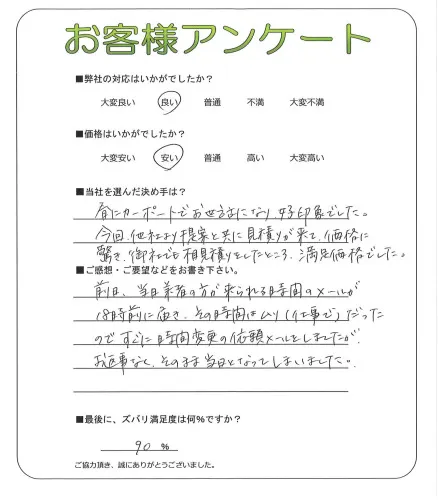 お客様アンケート
■弊社の対応はいかがでしたか？
大変良い 良い 普通 不満 大変不満
■価格はいかがでしたか？
大変安い 安い 普通 高い 大変高い
■当社を選んだ決め手は？
前にカーポートでお世話になり、好印象でした。
今回、他社より提案と共に見積りが来て、価格に
驚き、御社でも相見積りをしたところ、満足価格でした。
■ご感想・ご要望などをお書き下さい。
前日、当日業者の方が来られる時間のメールが
18時前に届き、その時間はムリ（仕事で）だった
のですぐに時間変更の依頼メールをしましたが、
お返事なく、そのまま当日となってしまいました。
■最後に、ズバリ満足度は何％ですか？
90 %
ご協力頂き、誠にありがとうございました。